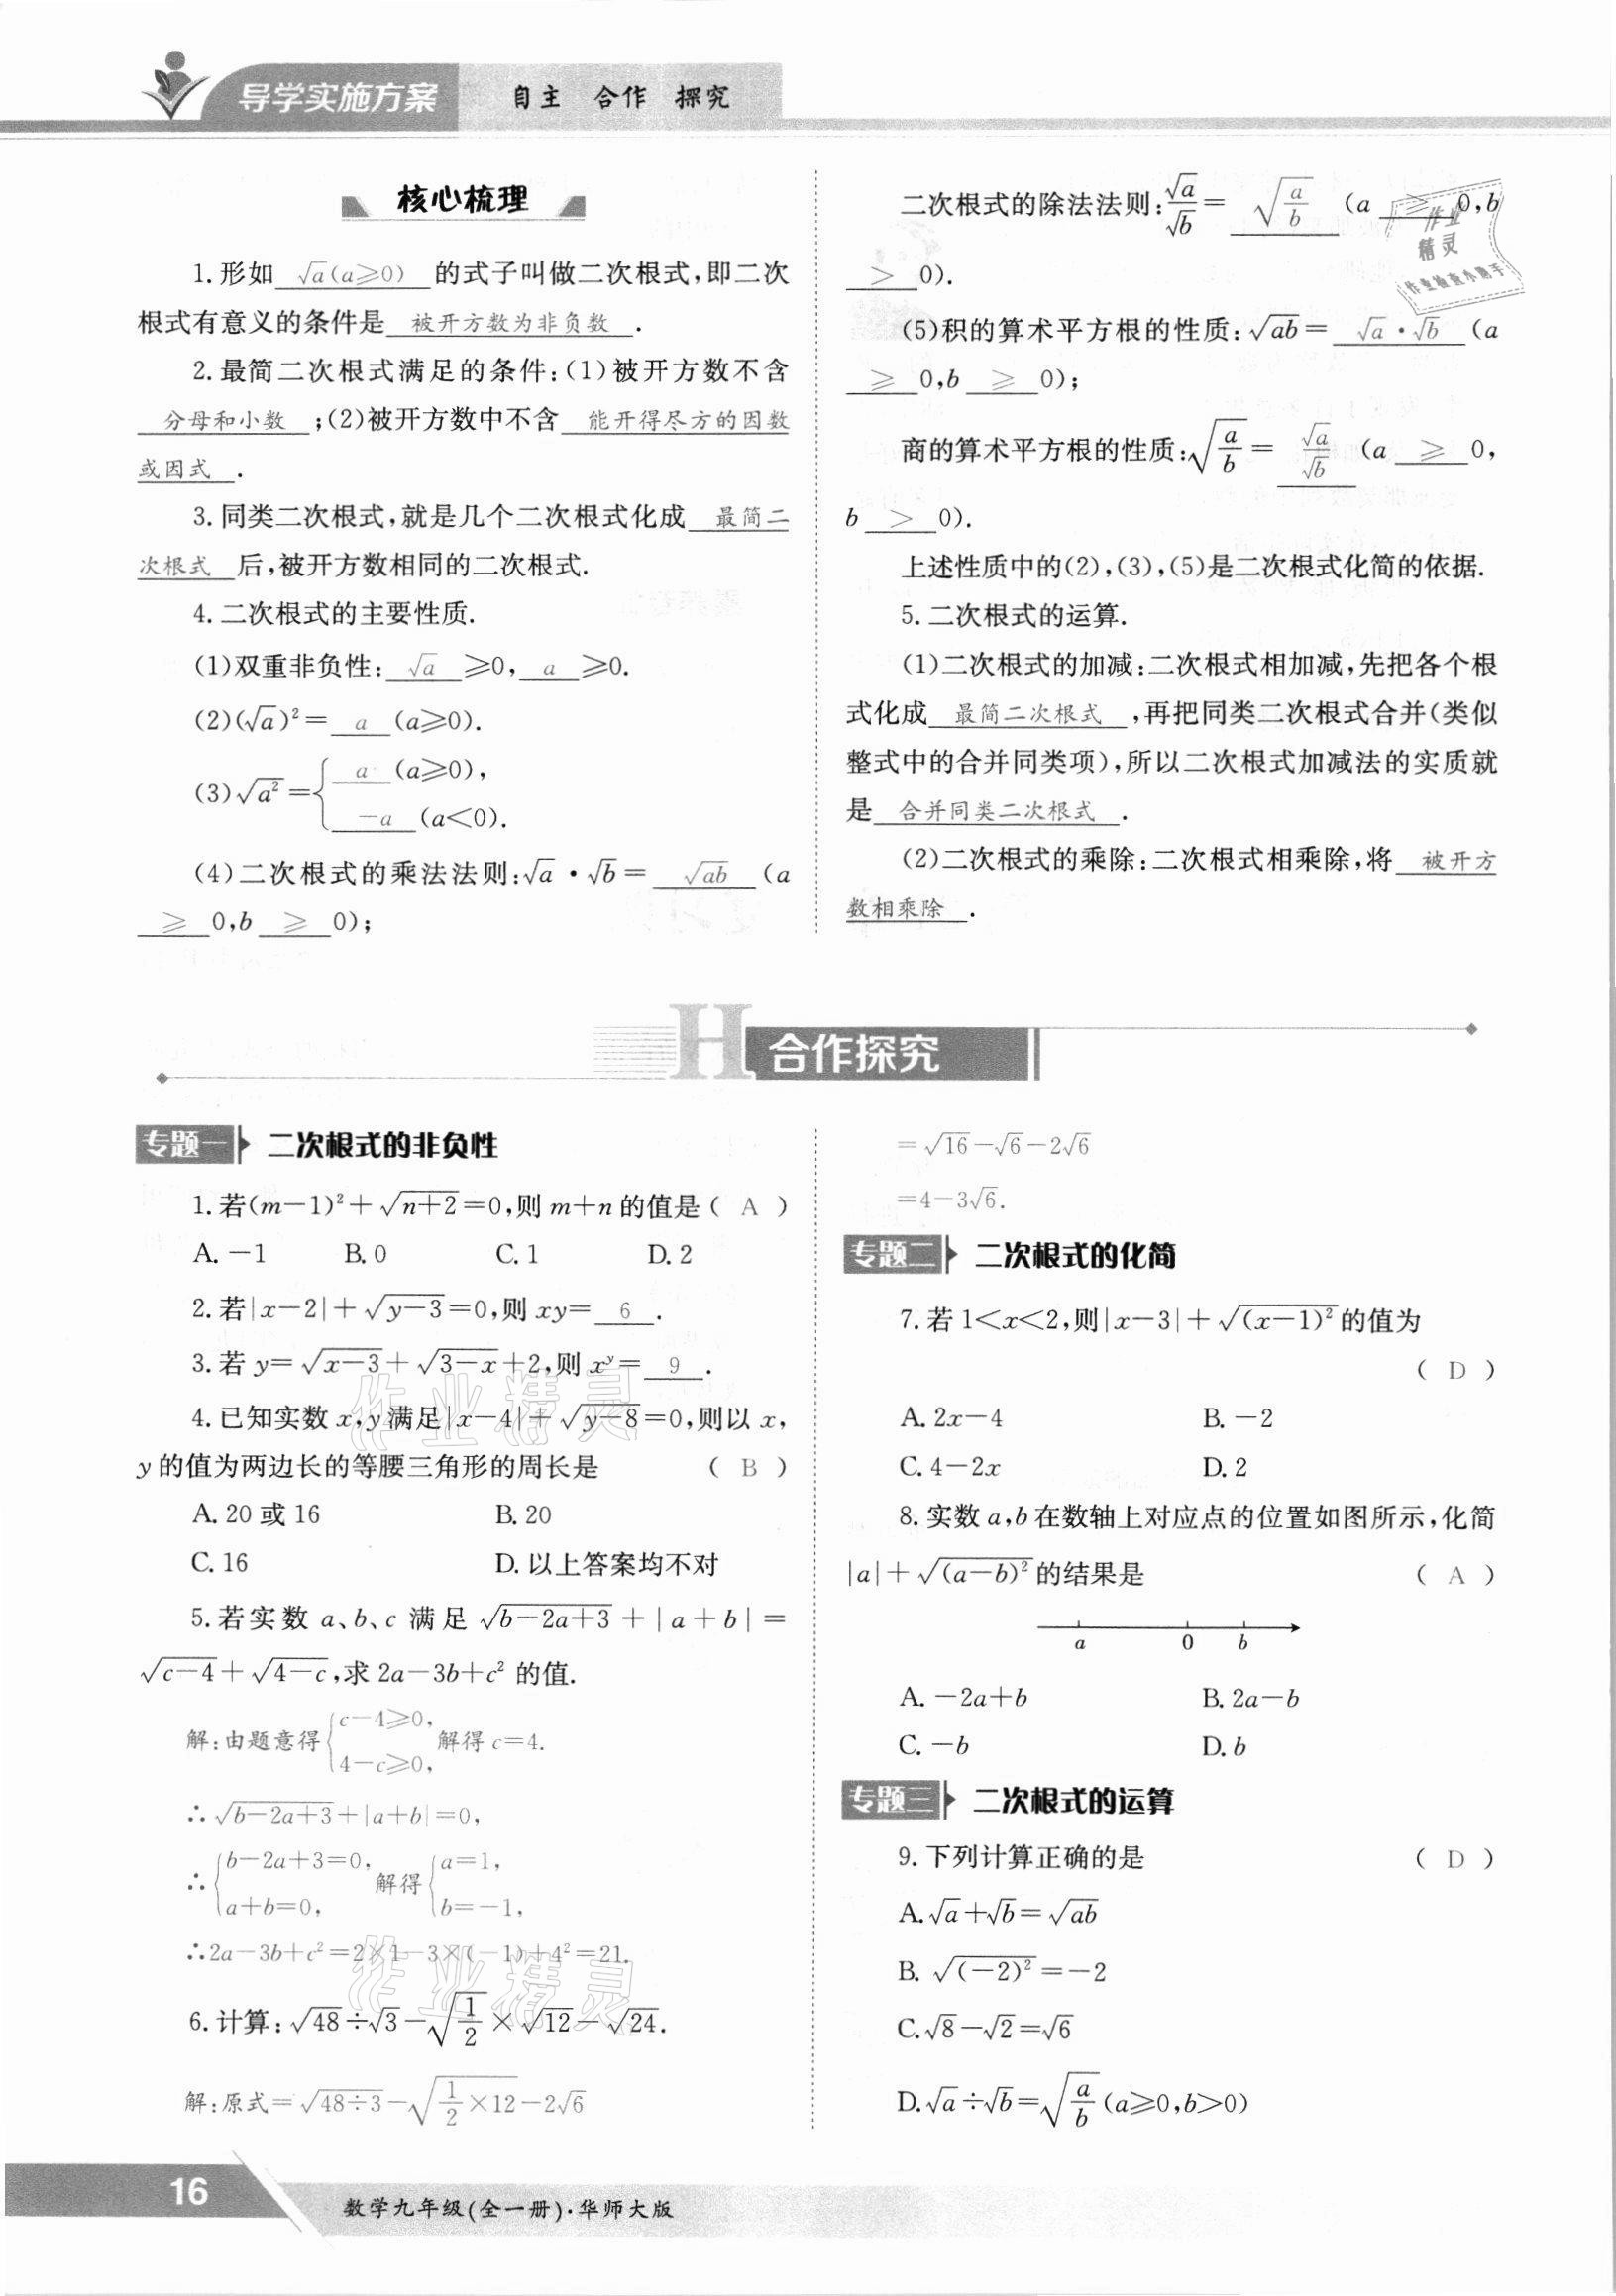 导学实施方案 自主 合作 探究
核心梳理
1.形如 √a(a≥0) 的式子叫做二次根式,即二次
根式有意义的条件是 被开方数为非负数 .
2.最简二次根式满足的条件:(1)被开方数不含
分母和小数 ;(2)被开方数中不含 能开得尽方的因数
或因式 .
3.同类二次根式,就是几个二次根式化成 最简二
次根式 后,被开方数相同的二次根式.
4.二次根式的主要性质.
(1)双重非负性: √a ≥0, a ≥0.
(2)(√a)²= a (a≥0).
(3)√a²={ a (a≥0),
-a (a<0).
(4)二次根式的乘法法则:√a·√b= √ab (a
≥ 0,b ≥ 0);
二次根式的除法法则:√a/√b= √(a/b) (a ≥ 0,b
> 0).
(5)积的算术平方根的性质:√ab= √a·√b (a
≥ 0,b ≥ 0);
商的算术平方根的性质:√(a/b)= √a/√b (a ≥ 0,
b > 0).
上述性质中的(2),(3),(5)是二次根式化简的依据.
5.二次根式的运算.
(1)二次根式的加减:二次根式相加减,先把各个根
式化成 最简二次根式 ,再把同类二次根式合并(类似
整式中的合并同类项),所以二次根式加减法的实质就
是 合并同类二次根式 .
(2)二次根式的乘除:二次根式相乘除,将 被开方
数相乘除 .
作业
精灵
作业检查小助手
H 合作探究
专题一 二次根式的非负性
1.若(m-1)²+√(n+2)=0,则m+n的值是( A )
A.-1 B.0 C.1 D.2
2.若|x-2|+√(y-3)=0,则xy= 6 .
3.若y=√(x-3)+√(3-x)+2,则xʸ= 9 .
4.已知实数x,y满足|x-4|+√(y-8)=0,则以x,
y的值为两边长的等腰三角形的周长是 ( B )
A.20或16 B.20
C.16 D.以上答案均不对
5.若实数a、b、c满足√(b-2a+3)+|a+b|=
√(c-4)+√(4-c),求2a-3b+c²的值.
解:由题意得{c-4≥0,
4-c≥0, 解得c=4.
∴√(b-2a+3)+|a+b|=0,
∴{b-2a+3=0, 解得{a=1,
a+b=0, b=-1,
∴2a-3b+c²=2×1-3×(-1)+4²=21.
6.计算:√48÷√3-√(1/2)×√12-√24.
解:原式=√(48÷3)-√(1/2×12)-2√6
=√16-√6-2√6
=4-3√6.
专题二 二次根式的化简
7.若1<x<2,则|x-3|+√((x-1)²)的值为
( D )
A.2x-4 B.-2
C.4-2x D.2
8.实数a,b在数轴上对应点的位置如图所示,化简
|a|+√((a-b)²)的结果是 ( A )
a 0 b
A.-2a+b B.2a-b
C.-b D.b
专题三 二次根式的运算
9.下列计算正确的是 ( D )
A.√a+√b=√ab
B.√((-2)²)=-2
C.√8-√2=√6
D.√a÷√b=√(a/b)(a≥0,b>0)
作业精灵
作业精灵
16 数学九年级(全一册)·华师大版